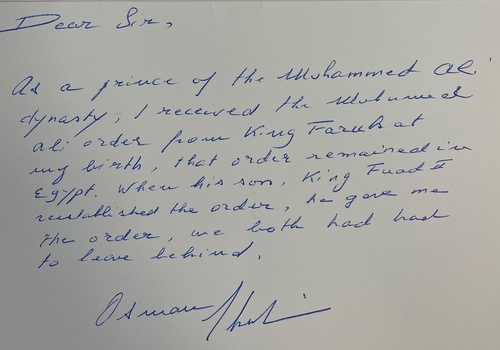 Dear Sir,
As a prince of the Mohammed Ali
dynasty, I received the Mohammed
Ali order from King Faruk at
my birth, that order remained in
Egypt. When his son, King Fuad II
reestablished the order, he gave me
the order, we both had had
to leave behind.
Osman